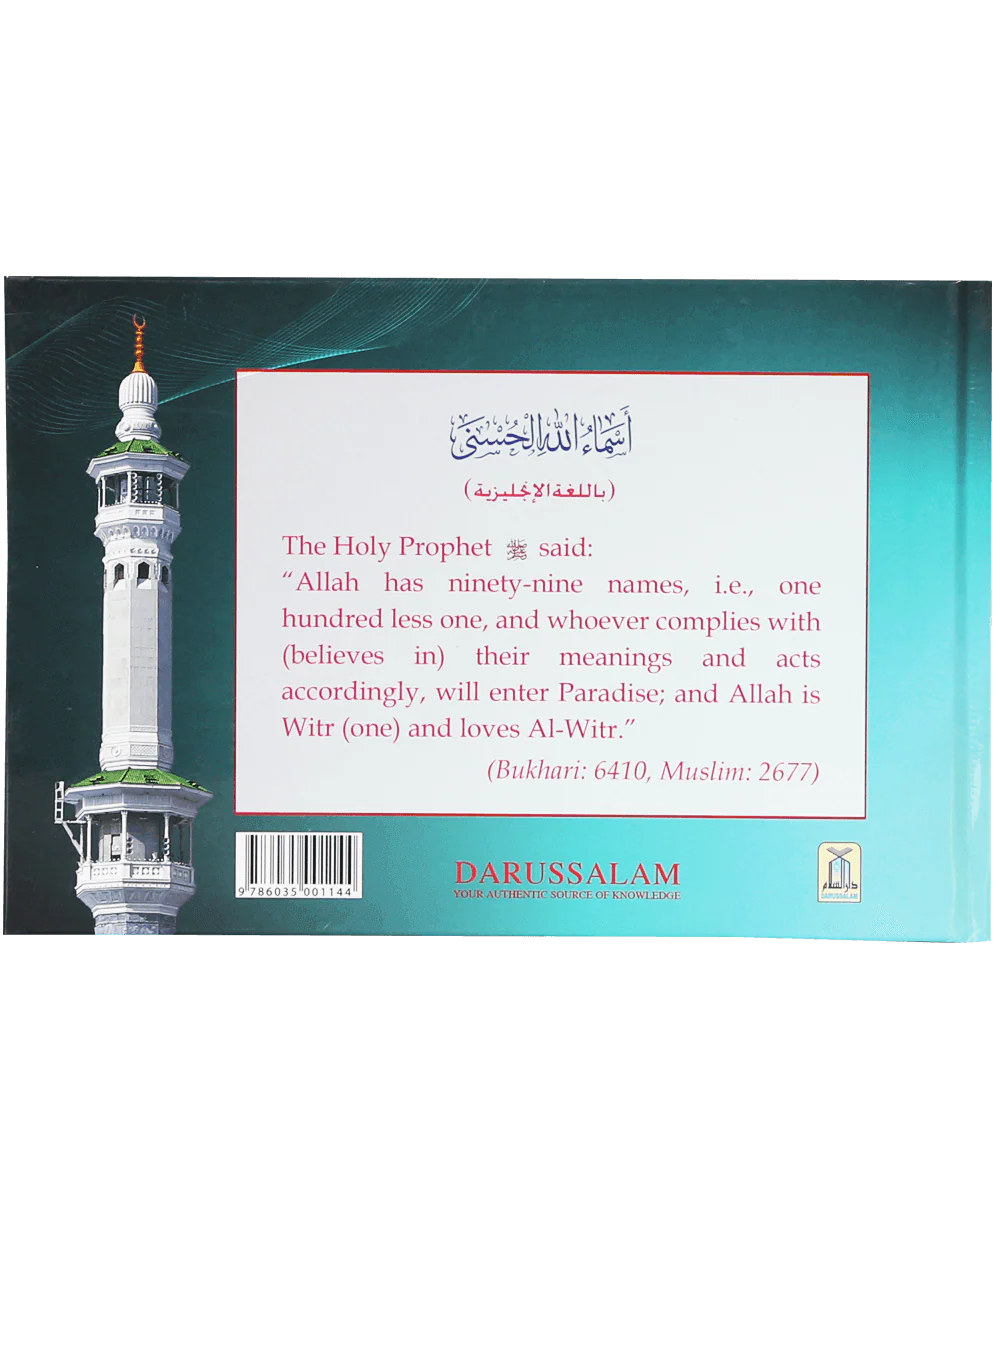 أسماء الله الحسنى
(باللغة الإنجليزية)
The Holy Prophet ﷺ said:
“Allah has ninety-nine names, i.e., one
hundred less one, and whoever complies with
(believes in) their meanings and acts
accordingly, will enter Paradise; and Allah is
Witr (one) and loves Al-Witr.”
(Bukhari: 6410, Muslim: 2677)
9 786035 001144
DARUSSALAM
YOUR AUTHENTIC SOURCE OF KNOWLEDGE
دار السلام
DARUSSALAM